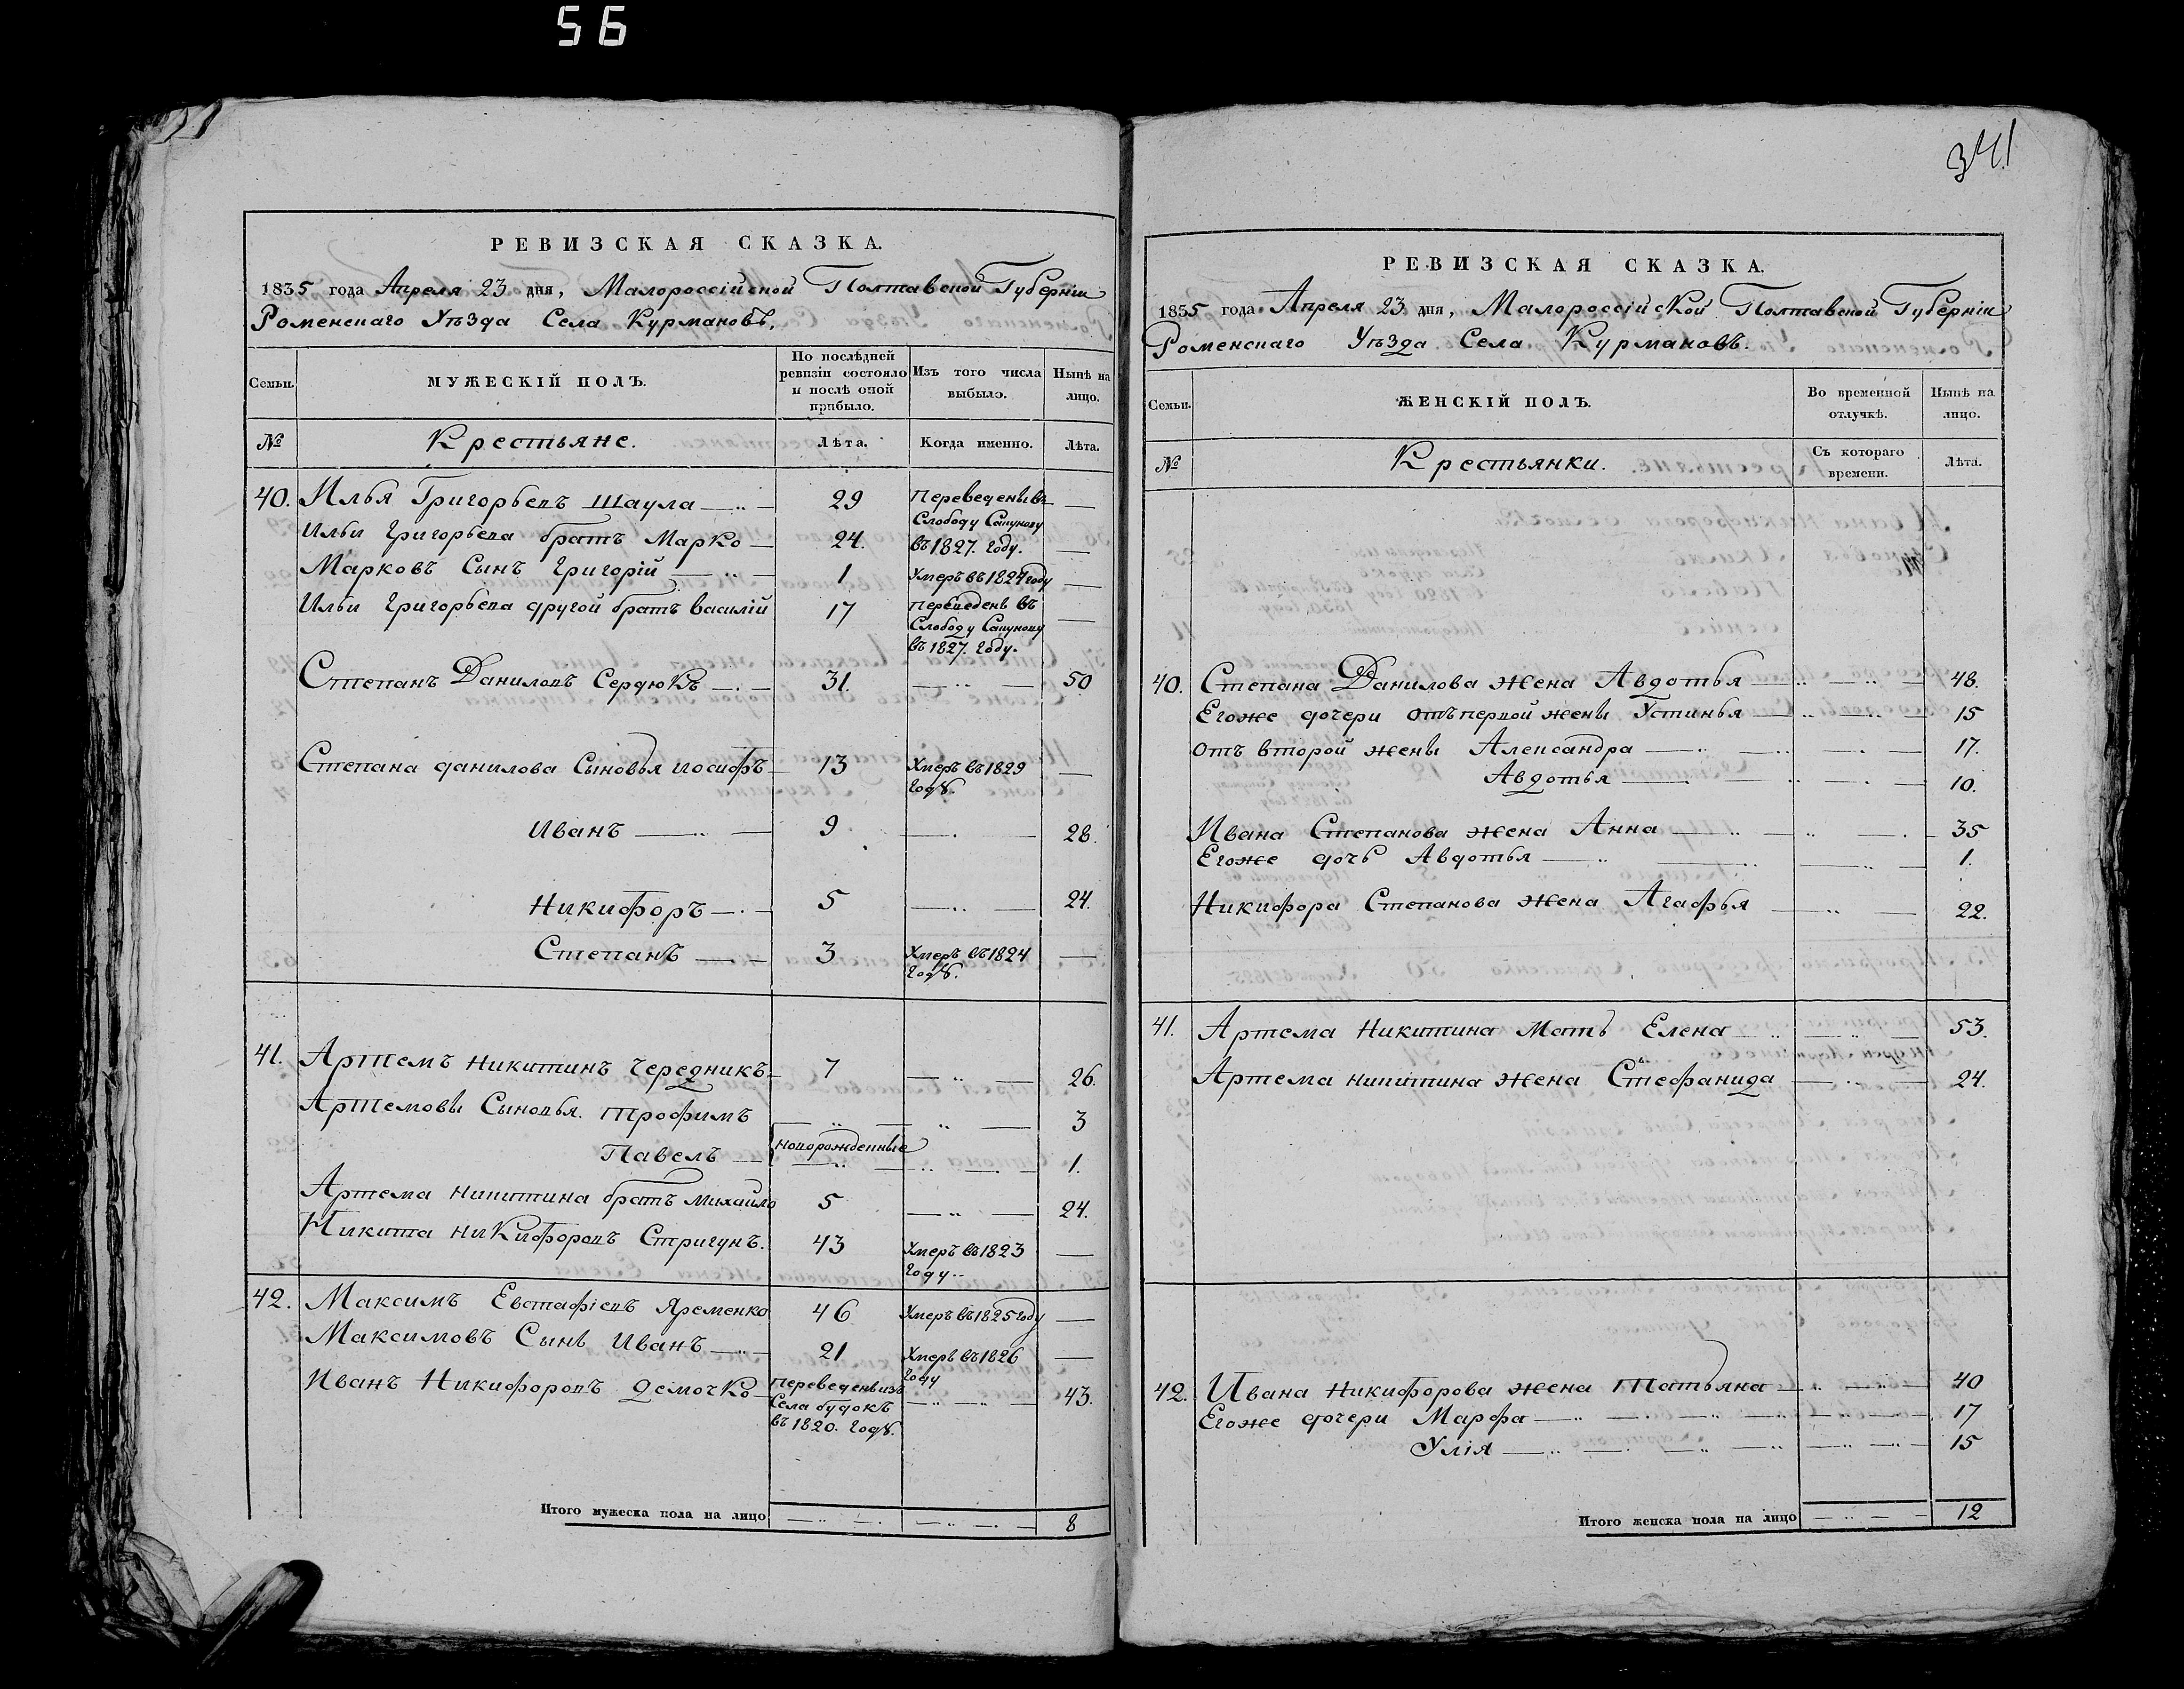 56
РЕВИЗСКАЯ СКАЗКА.
1835 года Апреля 23 дня, Малороссійской Полтавской Губерніи
Роменскаго Уѣзда Села Курмановъ.
Семьи.
МУЖЕСКІЙ ПОЛЪ.
По послѣдней ревизіи состояло и послѣ оной прибыло.
Изъ того числа выбыло.
Нынѣ на лицо.
№ Крестьяне. Лѣта. Когда именно. Лѣта.
40. Илья Григорьевъ Шаула 29 Переведены въ Слободу Сапунову въ 1827. Году.
Ильи Григорьева братъ Марко 24.
Марковъ Сынъ Григорій 1 Умеръ въ 1824 году
Ильи Григорьева другой братъ Василій 17 переведенъ въ Слободу Сапунову въ 1827. Году.
Степанъ Даниловъ Сердюкъ 31. 50
Степана Данилова Сыновья Иосифъ 13 Умеръ въ 1829 годѣ.
Иванъ 9 28.
Никифоръ 5 24.
Степанъ 3 Умеръ въ 1824 годѣ.
41. Артемъ Никитинъ Чередникъ 7 26.
Артемовы Сыновья. Трофимъ 3
новорожденные
Павелъ 1.
Артема Никитина братъ Михайло 5 24.
Никита Никифоровъ Стригунъ. 43 Умеръ въ 1823 году..
42. Максимъ Евстафіевъ Яременко 46 Умеръ въ 1825 году
Максимовъ Сынъ Иванъ 21 Умеръ въ 1826 году
Иванъ Никифоровъ Демочко переведенъ изъ Села будокъ въ 1820. Годѣ. 43.
Итого мужеска пола на лицо 8
341
РЕВИЗСКАЯ СКАЗКА.
1835 года Апреля 23 дня, Малороссійской Полтавской Губерніи
Роменскаго Уѣзда Села Курмановъ.
Семьи.
ЖЕНСКІЙ ПОЛЪ.
Во временной отлучкѣ.
Нынѣ на лицо.
№ Крестьянки. Съ котораго времени. Лѣта.
40. Степана Данилова жена Авдотья 48.
Егоже дочери отъ первой жены Устинья 15
отъ второй жены Александра 17.
Авдотья 10.
Ивана Степанова жена Анна 35
Егоже дочь Авдотья 1.
Никифора Степанова жена Агафья 22.
41. Артема Никитина Мать Елена 53.
Артема Никитина жена Стефанида 24.
42. Ивана Никифорова жена Татьяна 40
Егоже дочери Марфа 17
Улія 15
Итого женска пола на лицо 12